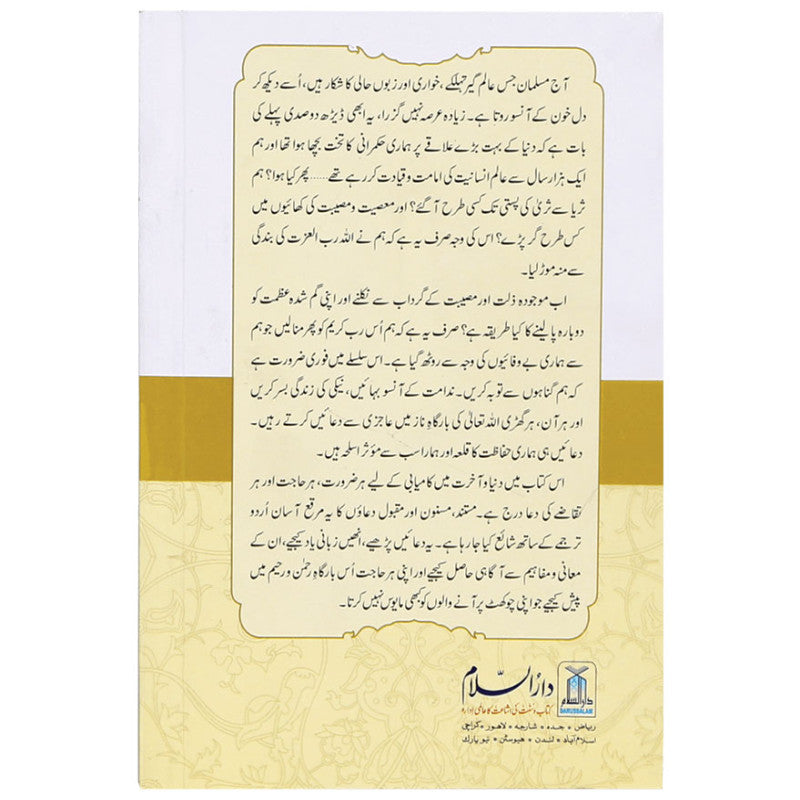 آج مسلمان جس عالم گیر تہلکے، خواری اور زبوں حالی کا شکار ہیں، اُسے دیکھ کر
دل خون کے آنسو روتا ہے۔ زیادہ عرصہ نہیں گزرا، یہ ابھی ڈیڑھ دو صدی پہلے کی
بات ہے کہ دنیا کے بہت بڑے علاقے پر ہماری حکمرانی کا تخت بچھا ہوا تھا اور ہم
ایک ہزار سال سے عالم انسانیت کی امامت و قیادت کر رہے تھے...... پھر کیا ہوا؟ ہم
ثریا سے ثریٰ کی پستی تک کسی طرح آ گئے؟ اور معصیت و مصیبت کی کھائیوں میں
کس طرح گر پڑے؟ اس کی وجہ صرف یہ ہے کہ ہم نے اللہ رب العزت کی بندگی
سے منہ موڑ لیا۔
اب موجودہ ذلت اور مصیبت کے گرداب سے نکلنے اور اپنی گم شدہ عظمت کو
دوبارہ پا لینے کا کیا طریقہ ہے؟ صرف یہ ہے کہ ہم اُس رب کریم کو پھر منا لیں جو ہم
سے ہماری بے وفائیوں کی وجہ سے روٹھ گیا ہے۔ اس سلسلے میں فوری ضرورت ہے
کہ ہم گناہوں سے توبہ کریں۔ ندامت کے آنسو بہائیں، نیکی کی زندگی بسر کریں
اور ہر آن، ہر گھڑی اللہ تعالیٰ کی بارگاہِ ناز میں عاجزی سے دعائیں کرتے رہیں۔
دعائیں ہی ہماری حفاظت کا قلعہ اور ہمارا سب سے مؤثر اسلحہ ہیں۔
اس کتاب میں دنیا و آخرت میں کامیابی کے لیے ہر ضرورت، ہر حاجت اور ہر
تقاضے کی دعا درج ہے۔ مستند، مسنون اور مقبول دعاؤں کا یہ مرقع آسان اُردو
ترجمے کے ساتھ شائع کیا جا رہا ہے۔ یہ دعائیں پڑھیے، انھیں زبانی یاد کیجیے، ان کے
معانی و مفاہیم سے آگاہی حاصل کیجیے اور اپنی ہر حاجت اُس بارگاہِ رحمٰن و رحیم میں
پیش کیجیے جو اپنی چوکھٹ پر آنے والوں کو کبھی مایوس نہیں کرتا۔
دارُالسّلام
کتاب و سنت کی اشاعت کا عالمی ادارہ
ریاض • جدہ • شارجہ • لاہور • کراچی
اسلام آباد • لندن • ہیوسٹن • نیو یارک
دارالسلام
DARUSSALAM